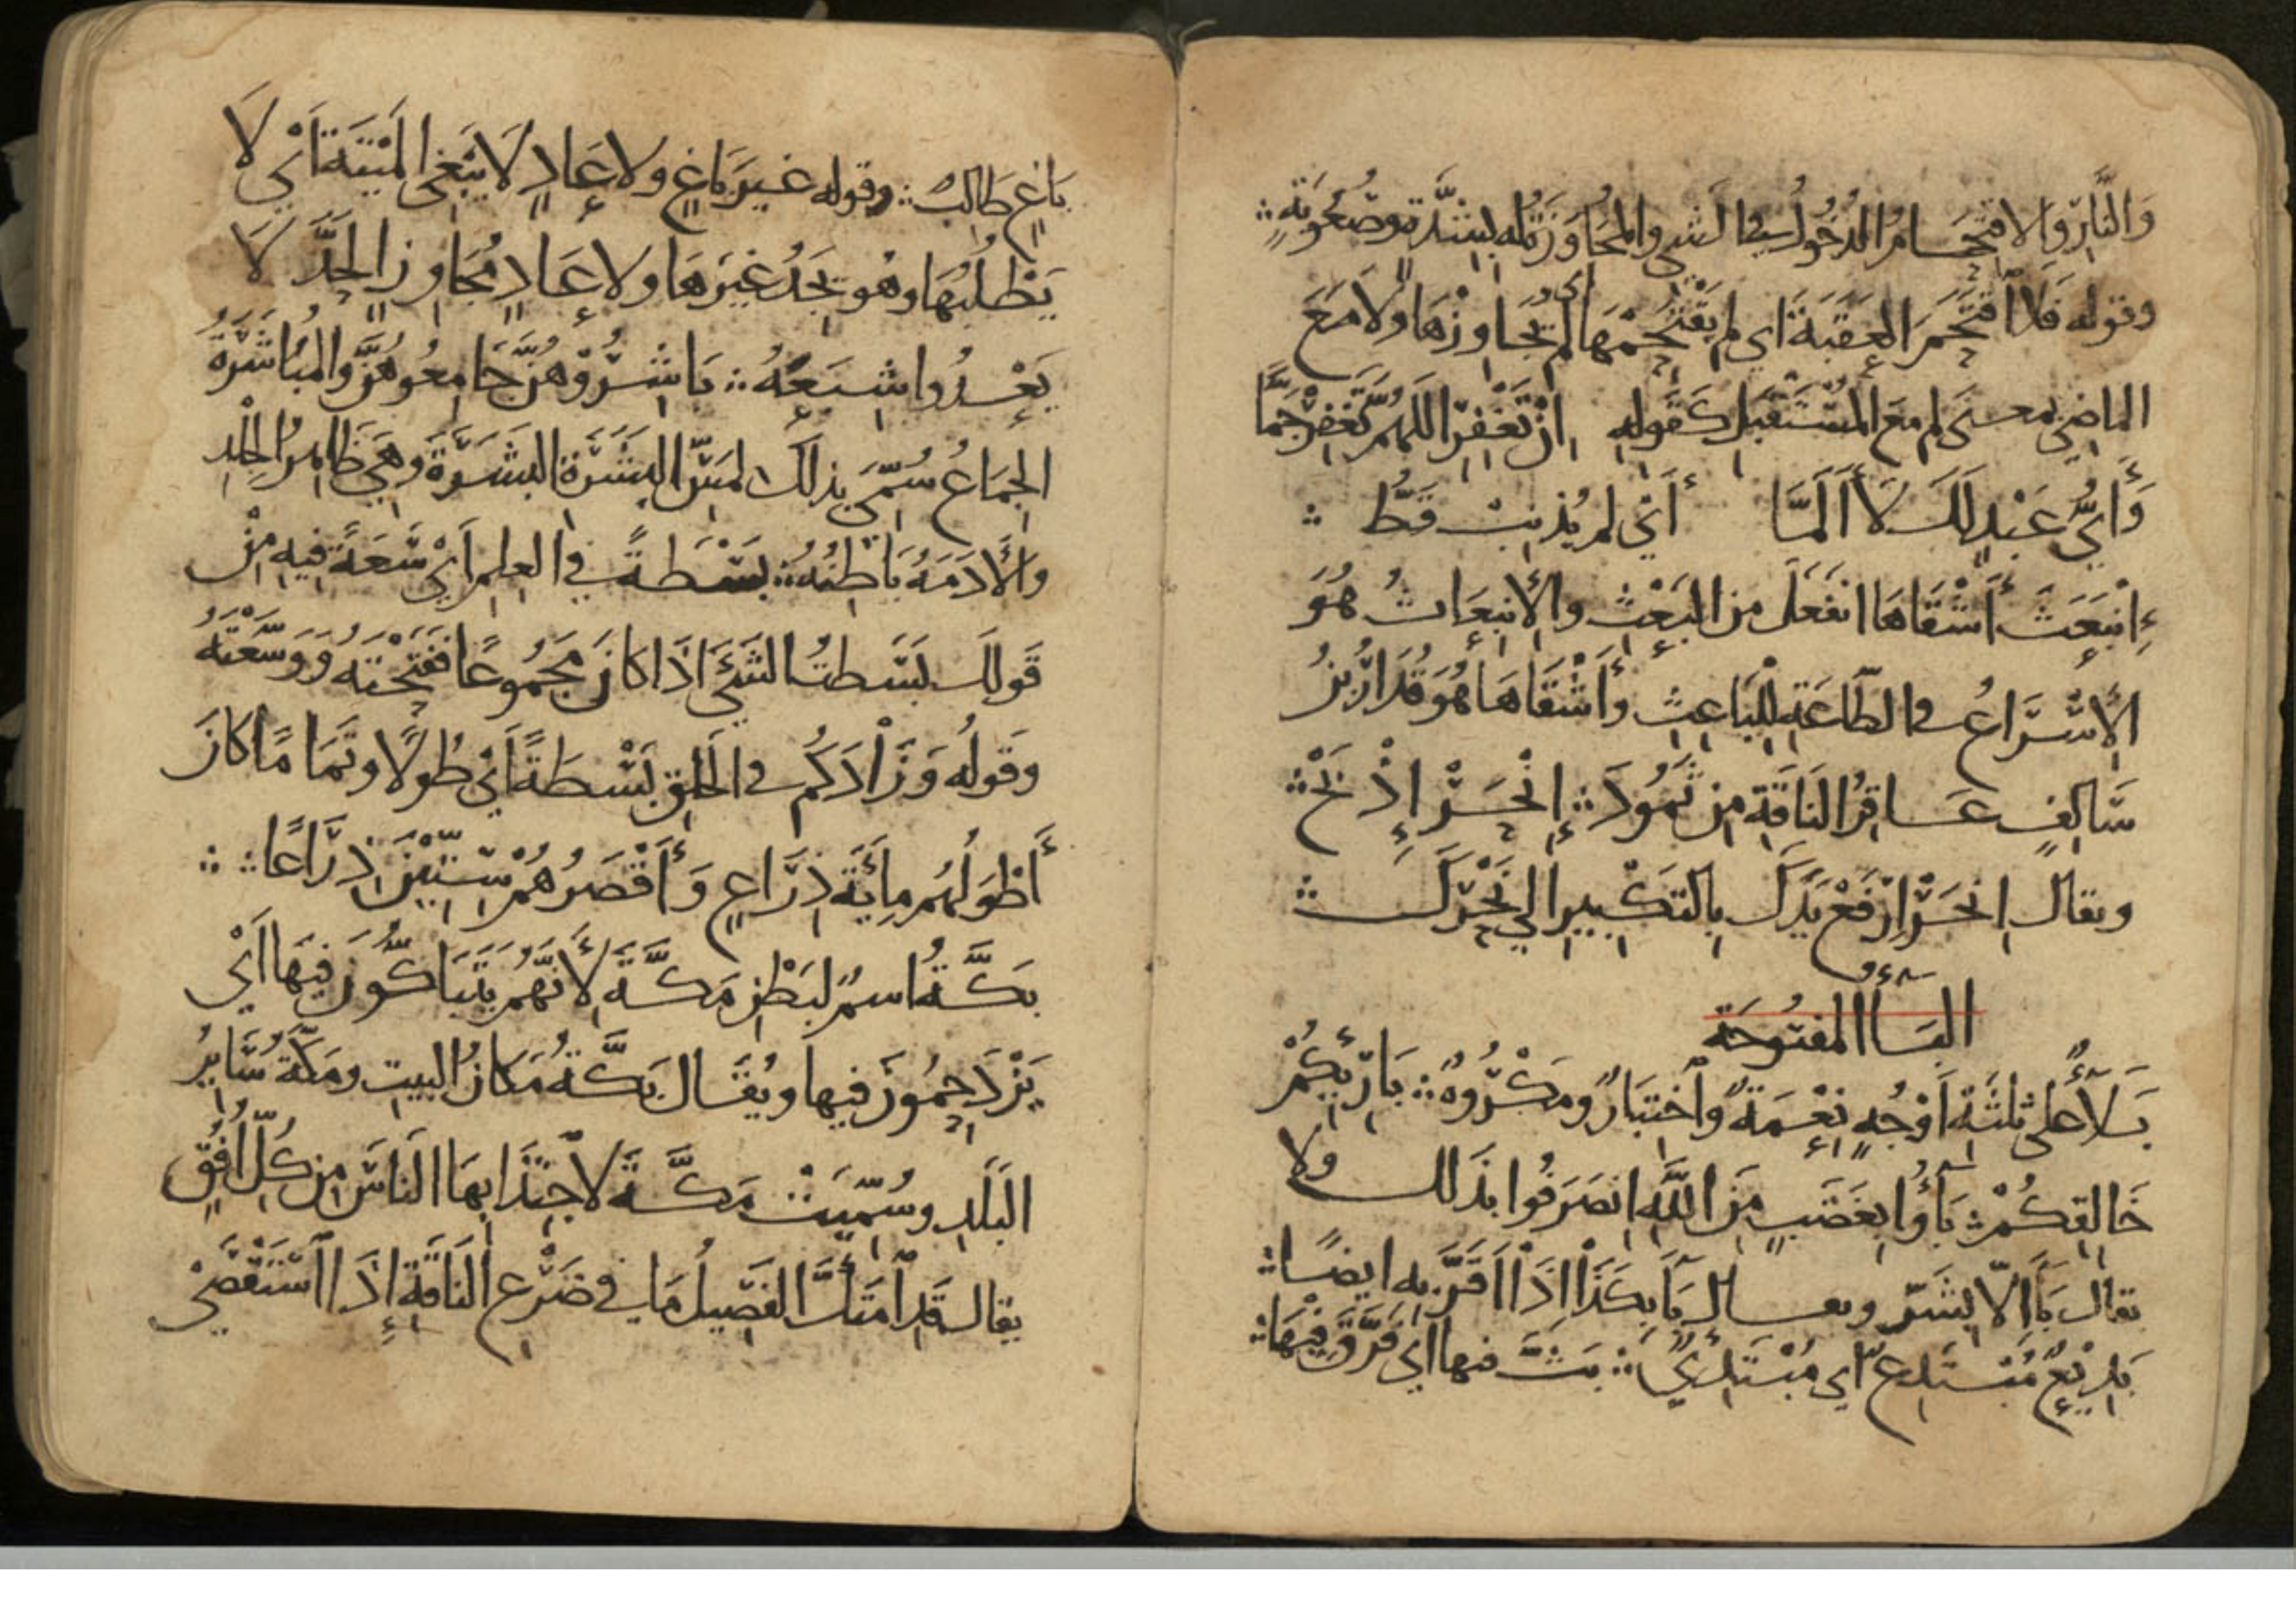 وَالنَّارِ وَالاقتِحَامُ الدُخُولُ في الشي والمُجَاوَزَةُ له بِشِدَّةٍ وصُعُوبَةٍ ∴
وقوله فَلَا اقْتَحَمَ العَقَبَةَ اي لم يَقْتَحِمْهَا اي لم يُجَاوِزْهَا ولَا مَعَ
الماضِي بمعنى لم مع المُسْتَقْبِلِ كَقَولِهِ اِنْ تَغْفِرِ اللَّهُمَّ تَغْفِرْ جَمَّا
وَأَيُّ عَبْدٍ لَكَ لَا أَلَمَّا أَيْ لم يُذنِبْ قَطُّ ∴
إِنْبَعَثَ أَشْقَاهَا انفَعَلَ مِنَ البَعْثِ والإِنبِعَاثُ هُوَ
الإِسْرَاعُ في الطَّاعَةِ لِلبَاعِثِ وَأَشْقَاهَا هُوَ قُدَارُ بنُ
سَالِفٍ عَاقِرُ النَاقَةِ مِن ثَمُودَ ∴ إِنْحَرْ إِذْبَحْ ∴
ويقال اِنحَرْ اِرْفَعْ يَدَكَ بِالتَكْبِيرِ الي نَحْرِكَ ∴
البَاءُ المفتُوحَة
بَلَآءٌ على ثلثَةِ اَوْجُهٍ نِعْمَةٌ وَاخْتِبَارٌ ومَكْرُوهٌ ∴ بَارِئِكُمْ
خَالِقِكُمْ ∴ بَآؤُا بِغَضَبٍ مِنَ اللَّهِ انصَرَفُوا بِذَلك ولا
يقال بَآءَ الّا بِشَرٍّ ويقال بَآءَ بِكَذَا اِذَا اَقَرَّ بِهِ ايضًا ∴
بَدِيْعٌ مُبْتَدِعٌ اي مُبْتَدِئٌ ∴ بَثَّ فيها اي فَرَّقَ فِيهَا ∴
بَاغٍ طَالِبٌ ∴ وقوله غيرَ بَاغٍ ولا عَادٍ لَا يَبْغِي المَيْتَةَ اَيْ لَا
يَطْلُبُهَا وهُو يَجِدُ غَيْرَهَا ولا عَادٍ مُجَاوِزٍ الحَدَّ لَا
يَعْدُوا شِبَعَهُ ∴ بَاشِرُوْهُنَّ جَامِعُوهُنَّ وَالمُبَاشَرَةُ
الجِمَاعُ سُمِّيَ بِذلِكَ لِمَسِّ البَشَرَةِ البَشَرَةَ وهِيَ ظَاهِرُ الجِلْدِ
والأَدَمَةُ بَاطِنُهُ ∴ بَسْطَةً في العِلمِ اَيْ سَعَةً فيهِ مِنْ
قَولِكَ بَسَطتُ الشَيْءَ اذَا كانَ مَجمُوعًا فَفَتَحْتَهُ وَوَسَّعْتَهُ
وَقَولُه وَزَادَكُم في الخَلقِ بَسْطَةً اَيْ طُولًا وتَمَامًا كانَ
أَطوَلُهُم مِأئَةَ ذِرَاعٍ وَأَقْصَرُهُم سِتِّيْنَ ذِرَاعًا ∴ ∴
بَكَّةُ اسمٌ لِبَطْنِ مَكَّةَ لأَنَّهُمْ يَتَبَاكُّونَ فِيهَا اَيْ
يَزْدَحِمُونَ فيها ويُقَال بَكَّةُ مَكَانُ البيتِ ومَكَّةُ سَايِرُ
البَلَدِ وسُمِّيَتْ مَكَّةَ لاجْتِذَابِهَا النَاسَ مِن كُلِّ اُفُقٍ
يقال قَدِ امْتَكَّ الفَصِيلُ مَا في ضَرْعِ النَاقَةِ اِذَا اسْتَقْصَى